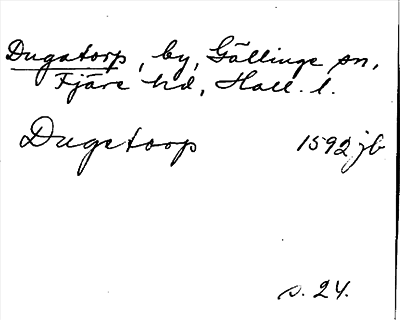 Dugatorp, by, Gällinge sn,
Fjäre hd, Hall. l.
Dugetorp 1592 jb
s. 24.